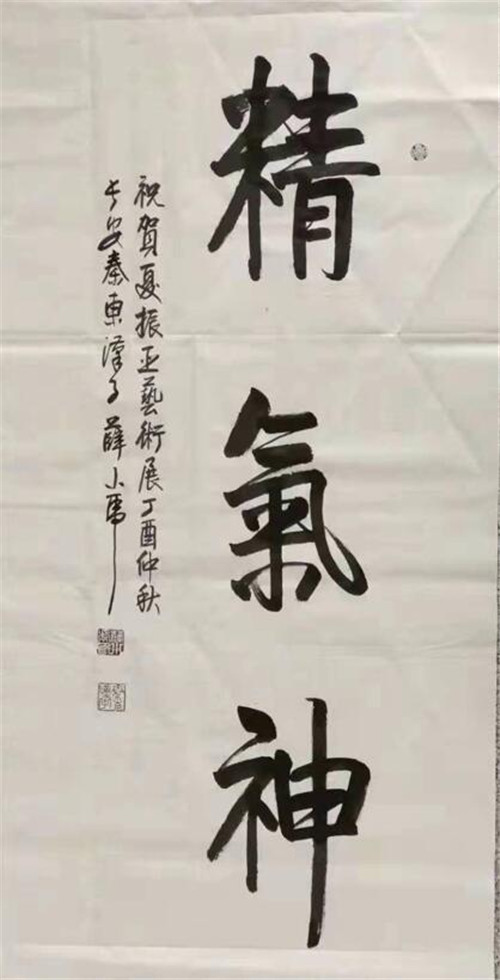 精氣神
祝賀夏振亚藝術展丁酉仲秋
长安秦東漢子薛小虎